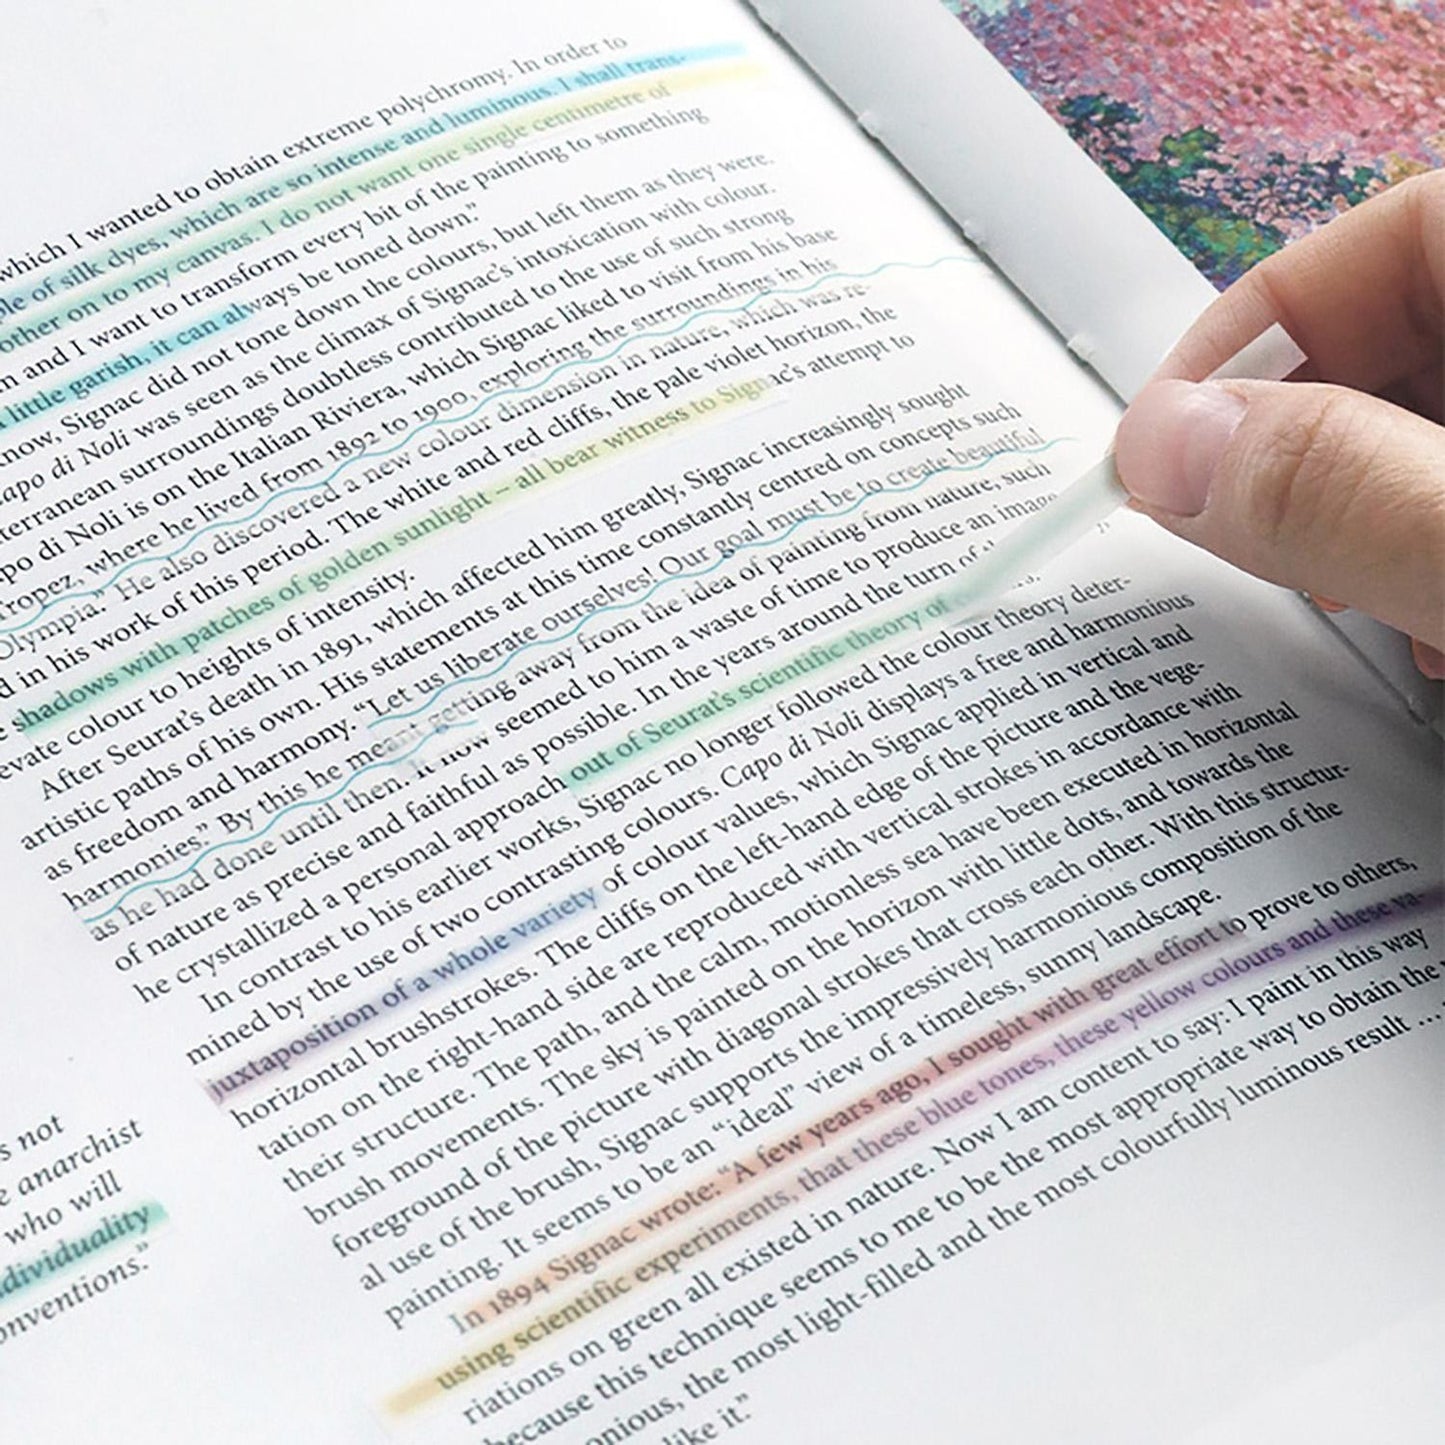 which I wanted to obtain extreme polychromy. In order to
of silk dyes, which are so intense and luminous. I shall trans-
other on to my canvas. I do not want one single centimetre of
and I want to transform every bit of the painting to something
little garish, it can always be toned down."
know, Signac did not tone down the colours, but left them as they were.
Capo di Noli was seen as the climax of Signac's intoxication with colour.
terranean surroundings doubtless contributed to the use of such strong
po di Noli is on the Italian Riviera, which Signac liked to visit from his base
Tropez, where he lived from 1892 to 1900, exploring the surroundings in his
Olympia." He also discovered a new colour dimension in nature, which was re-
d in his work of this period. The white and red cliffs, the pale violet horizon, the
shadows with patches of golden sunlight – all bear witness to Signac's attempt to
evate colour to heights of intensity.
After Seurat's death in 1891, which affected him greatly, Signac increasingly sought
artistic paths of his own. His statements at this time constantly centred on concepts such
as freedom and harmony. "Let us liberate ourselves! Our goal must be to create beautiful
harmonies." By this he meant getting away from the idea of painting from nature, such
as he had done until then. It now seemed to him a waste of time to produce an image
of nature as precise and faithful as possible. In the years around the turn of
he crystallized a personal approach out of Seurat's scientific theory of
In contrast to his earlier works, Signac no longer followed the colour theory deter-
mined by the use of two contrasting colours. Capo di Noli displays a free and harmonious
juxtaposition of a whole variety of colour values, which Signac applied in vertical and
horizontal brushstrokes. The cliffs on the left-hand edge of the picture and the vege-
tation on the right-hand side are reproduced with vertical strokes in accordance with
their structure. The path, and the calm, motionless sea have been executed in horizontal
brush movements. The sky is painted on the horizon with little dots, and towards the
foreground of the picture with diagonal strokes that cross each other. With this structur-
al use of the brush, Signac supports the impressively harmonious composition of the
painting. It seems to be an "ideal" view of a timeless, sunny landscape.
In 1894 Signac wrote: "A few years ago, I sought with great effort to prove to others,
using scientific experiments, that these blue tones, these yellow colours and these va-
riations on green all existed in nature. Now I am content to say: I paint in this way
because this technique seems to me to be the most appropriate way to obtain the
onious, the most light-filled and the most colourfully luminous result ...
like it."
s not
e anarchist
who will
dividuality
onventions."